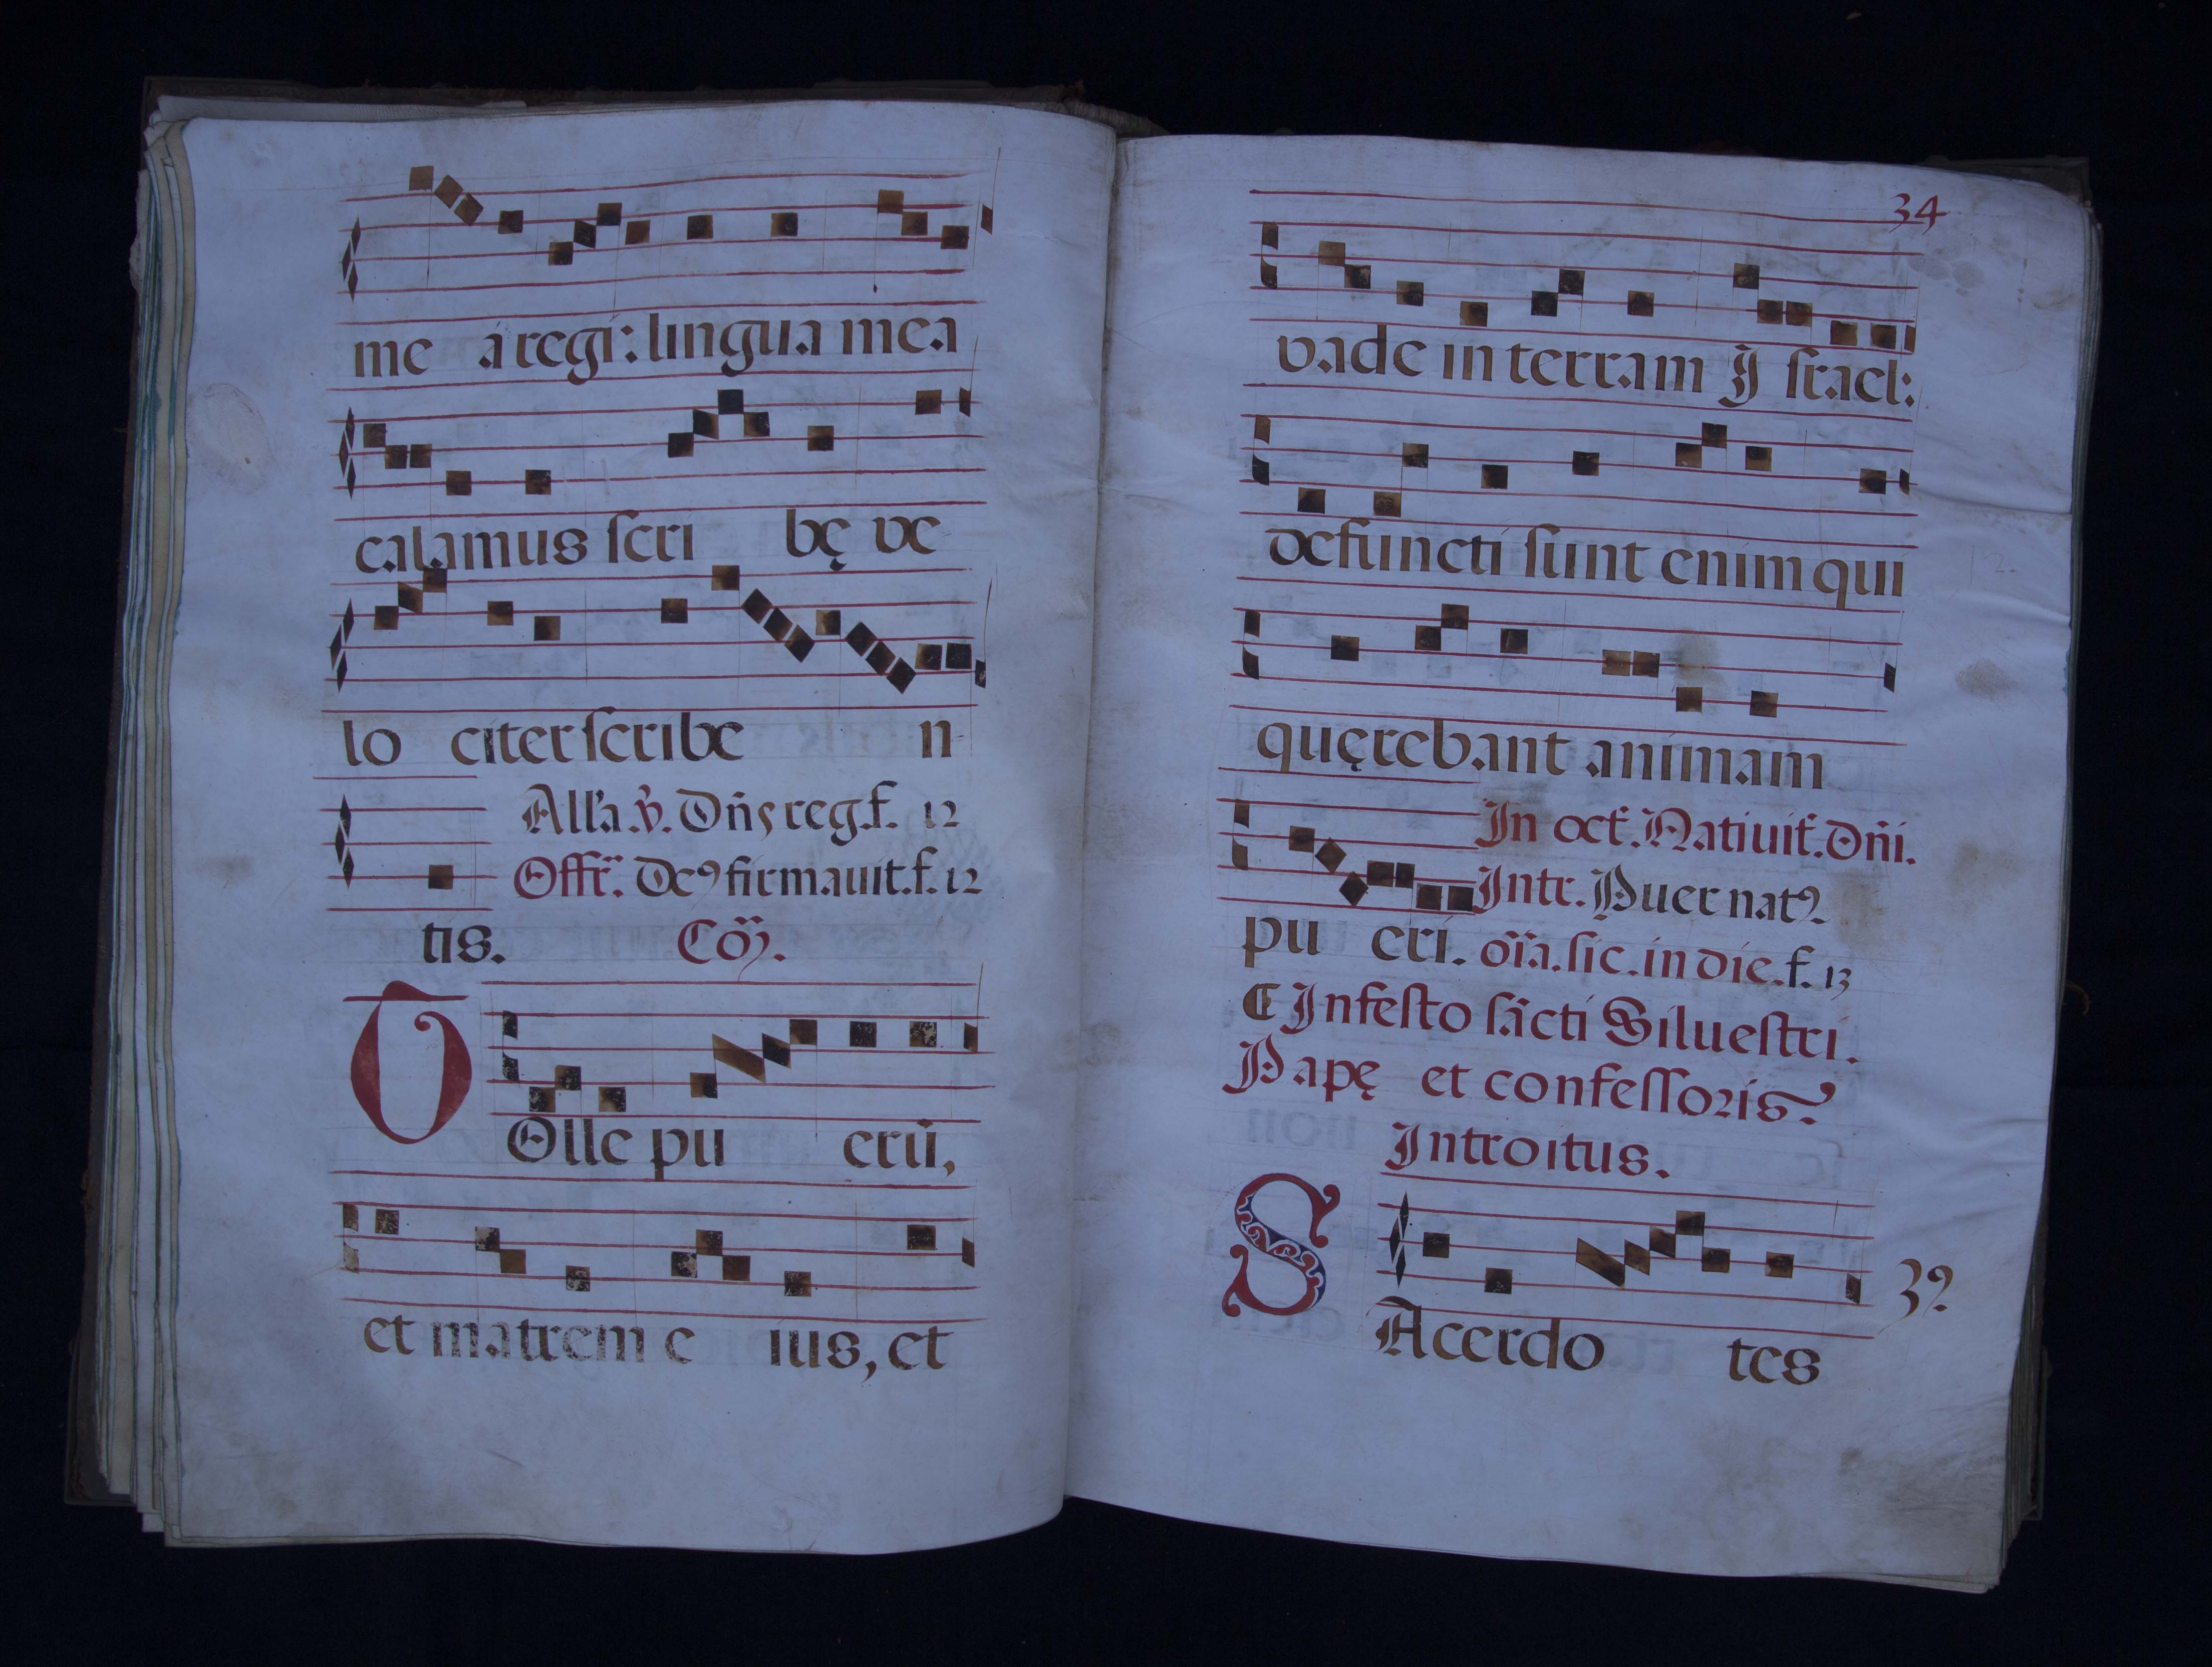 me a regi: lingua mea
calamus ſcri bę ve
lo citer ſcribe n
All'a. v̾. Dn̄s reg. f. 12
Offr̃. Deꝰ firmauit. f. 12
tis. Cõ.
T Olle pu erū,
et matrem e ius, et
34
vade in terram J ſrael:
defuncti ſunt enim qui
quęrebant animam
In oct̃. Natiuit̃. Dn̄i.
Intr. Puer natꝰ
pu eri. oīa. ſic. in die. f. 13
¶ In feſto ſācti Silueſtri.
Papę et confeſſoris
Introitus.
S Acerdo tes